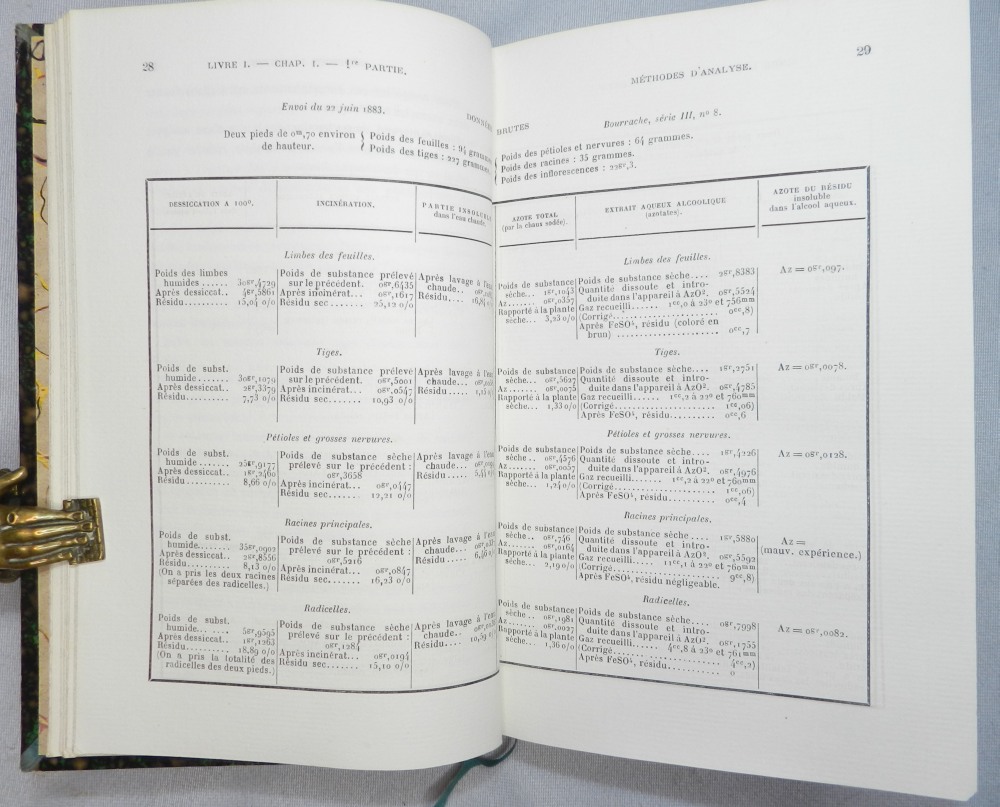 28 LIVRE I. — CHAP. I. — 1re PARTIE.
Envoi du 22 juin 1883.
DONNÉES
Deux pieds de 0m,70 environ { Poids des feuilles : 94 grammes
de hauteur. Poids des tiges : 227 grammes
DESSICCATION A 100°. INCINÉRATION. PARTIE INSOLUBLE
dans l'eau chaude.
Limbes des feuilles.
Poids des limbes
humides ...... 30gr,4729
Après dessiccat.. 4gr,5861
Résidu.......... 15,04 0/0
Poids de substance prélevé
sur le précédent. 0gr,6435
Après incinérat... 0gr,1617
Résidu sec....... 25,12 0/0
Après lavage à l'eau
chaude...
Résidu....
Tiges.
Poids de subst.
humide....... 30gr,1079
Après dessiccat.. 2gr,3379
Résidu.......... 7,73 0/0
Poids de substance prélevé
sur le précédent. 0gr,5001
Après incinérat... 0gr,0547
Résidu sec....... 10,93 0/0
Après lavage à l'eau
chaude...
Résidu....
Pétioles et grosses nervures.
Poids de subst.
humide....... 25gr,9177
Après dessiccat. 2460
Résidu.......... 8,66 0/0
Poids de substance sèche
prélevé sur le précédent :
0gr,3658
Après incinérat... 0gr,0447
Résidu sec....... 12,21 0/0
Après lavage à l'eau
chaude...
Résidu....
Racines principales.
Poids de subst.
humide........ 35gr,0902
Après dessiccat.. 2gr,8556
Résidu.......... 8,13 0/0
(On a pris les deux racines
séparées des radicelles.)
Poids de substance sèche
prélevé sur le précédent :
0gr,5216
Après incinérat... 0gr,0847
Résidu sec....... 16,23 0/0
Après lavage à l'eau
chaude...
Résidu.....
Radicelles.
Poids de subst.
humide....... 5gr,9595
Après dessiccat.. 1gr,1263
Résidu.......... 18,89 0/0
(On a pris la totalité des
radicelles des deux pieds.)
Poids de substance sèche
prélevé sur le précédent :
0gr,1284
Après incinérat... 0gr,0194
Résidu sec....... 15,10 0/0
Après lavage à l'eau
chaude..
Résidu....
MÉTHODES D'ANALYSE. 29
BRUTES Bourrache, série III, n° 8.
{ Poids des pétioles et nervures : 64 grammes.
Poids des racines : 35 grammes.
Poids des inflorescences : 22gr,3.
AZOTE TOTAL
(par la chaux sodée).
EXTRAIT AQUEUX ALCOOLIQUE
(azotates).
AZOTE DU RÉSIDU
insoluble
dans l'alcool aqueux.
Limbes des feuilles.
Poids de substance
sèche.. 1gr,1043
Az....... 0gr,0357
Rapporté à la plante
sèche... 3,23 0/0
Poids de substance sèche.... 2gr,8383
Quantité dissoute et intro-
duite dans l'appareil à AzO². 0gr,5524
Gaz recueilli...... 1cc,0 à 23° et 756mm
(Corrigé.................... 0cc,8)
Après FeSO⁴, résidu (coloré en
brun) .................... 0cc,7
Az = 0gr,097.
Tiges.
Poids de substance
sèche... 0gr,5627
Az....... 0gr,0075
Rapporté à la plante
sèche... 1,33 0/0
Poids de substance sèche.... 1gr,2751
Quantité dissoute et intro-
duite dans l'appareil à AzO². 0gr,4785
Gaz recueilli...... 1cc,2 à 22° et 760mm
(Corrigé.................... 1cc,06)
Après FeSO⁴, résidu......... 0cc,6
Az = 0gr,0078.
Pétioles et grosses nervures.
Poids de substance
sèche.. 0gr,4576
Az....... 0gr,0057
Rapporté à la plante
sèche... 1,24 0/0
Poids de substance sèche.... 1gr,4226
Quantité dissoute et intro-
duite dans l'appareil à AzO². 0gr,4976
Gaz recueilli....... 1cc,2 à 22° et 760mm
(Corrigé.................... 1cc,06)
Après FeSO⁴, résidu......... 0cc,4
Az = 0gr,0128.
Racines principales.
Poids de substance
sèche.. 0gr,746
Az....... 0gr,0164
Rapporté à la plante
sèche... 2,19 0/0
Poids de substance sèche.... 1gr,5880
Quantité dissoute et intro-
duite dans l'appareil à AzO². 0gr,5592
Gaz recueilli...... 11cc,1 à 22° et 760mm
(Corrigé.................... 9cc,8)
Après FeSO⁴, résidu négligeable.
Az =
(mauv. expérience.)
Radicelles.
Poids de substance
sèche.. 0gr,1981
Az....... 0gr,0027
Rapporté à la plante
sèche... 1,36 0/0
Poids de substance sèche.... 0gr,7998
Quantité dissoute et intro-
duite dans l'appareil à AzO². 0gr,1755
Gaz recueilli..... 4cc,8 à 23° et 761mm
(Corrigé.................... 4cc,2)
Après FeSO⁴, résidu......... 0
Az = 0gr,0082.